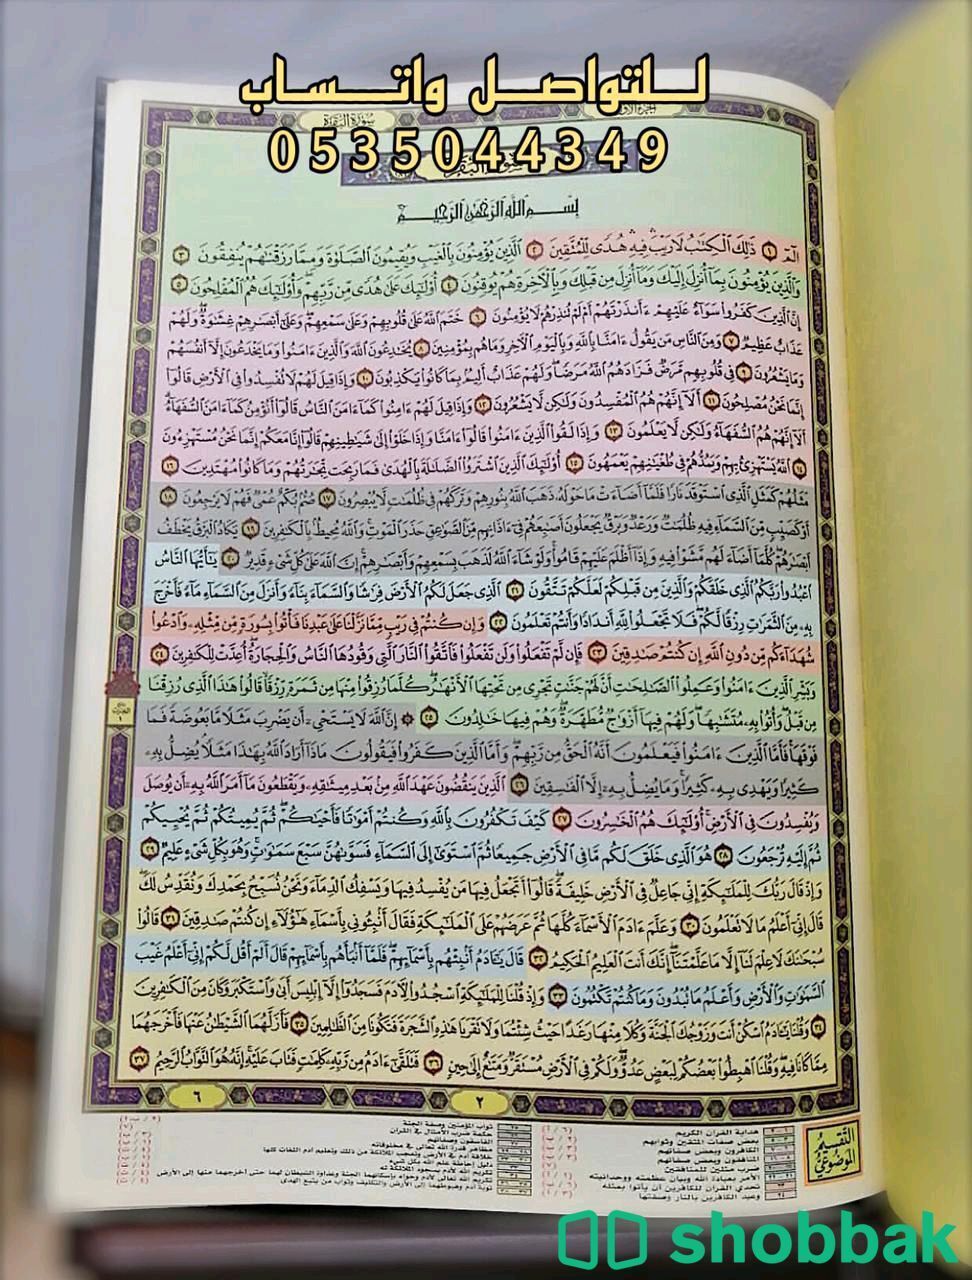 للتواصل واتساب
0535044349
سُورَةُ البَقَرَة
بِسْمِ اللَّهِ الرَّحْمَٰنِ الرَّحِيمِ
الٓمٓ ١ ذَٰلِكَ الْكِتَٰبُ لَا رَيْبَ فِيهِ هُدًى لِّلْمُتَّقِينَ ٢ الَّذِينَ يُؤْمِنُونَ بِالْغَيْبِ وَيُقِيمُونَ الصَّلَوٰةَ وَمِمَّا رَزَقْنَٰهُمْ يُنفِقُونَ ٣
وَالَّذِينَ يُؤْمِنُونَ بِمَا أُنزِلَ إِلَيْكَ وَمَا أُنزِلَ مِن قَبْلِكَ وَبِالْآخِرَةِ هُمْ يُوقِنُونَ ٤ أُولَٰئِكَ عَلَىٰ هُدًى مِّن رَّبِّهِمْ وَأُولَٰئِكَ هُمُ الْمُفْلِحُونَ ٥
إِنَّ الَّذِينَ كَفَرُوا سَوَاءٌ عَلَيْهِمْ ءَأَنذَرْتَهُمْ أَمْ لَمْ تُنذِرْهُمْ لَا يُؤْمِنُونَ ٦ خَتَمَ اللَّهُ عَلَىٰ قُلُوبِهِمْ وَعَلَىٰ سَمْعِهِمْ وَعَلَىٰ أَبْصَٰرِهِمْ غِشَٰوَةٌ وَلَهُمْ
عَذَابٌ عَظِيمٌ ٧ وَمِنَ النَّاسِ مَن يَقُولُ ءَامَنَّا بِاللَّهِ وَبِالْيَوْمِ الْآخِرِ وَمَا هُم بِمُؤْمِنِينَ ٨ يُخَٰدِعُونَ اللَّهَ وَالَّذِينَ ءَامَنُوا وَمَا يَخْدَعُونَ إِلَّا أَنفُسَهُمْ
وَمَا يَشْعُرُونَ ٩ فِي قُلُوبِهِم مَّرَضٌ فَزَادَهُمُ اللَّهُ مَرَضًا وَلَهُمْ عَذَابٌ أَلِيمٌ بِمَا كَانُوا يَكْذِبُونَ ١٠ وَإِذَا قِيلَ لَهُمْ لَا تُفْسِدُوا فِي الْأَرْضِ قَالُوا
إِنَّمَا نَحْنُ مُصْلِحُونَ ١١ أَلَا إِنَّهُمْ هُمُ الْمُفْسِدُونَ وَلَٰكِن لَّا يَشْعُرُونَ ١٢ وَإِذَا قِيلَ لَهُمْ ءَامِنُوا كَمَا ءَامَنَ النَّاسُ قَالُوا أَنُؤْمِنُ كَمَا ءَامَنَ السُّفَهَاءُ
أَلَا إِنَّهُمْ هُمُ السُّفَهَاءُ وَلَٰكِن لَّا يَعْلَمُونَ ١٣ وَإِذَا لَقُوا الَّذِينَ ءَامَنُوا قَالُوا ءَامَنَّا وَإِذَا خَلَوْا إِلَىٰ شَيَٰطِينِهِمْ قَالُوا إِنَّا مَعَكُمْ إِنَّمَا نَحْنُ مُسْتَهْزِءُونَ
١٤ اللَّهُ يَسْتَهْزِئُ بِهِمْ وَيَمُدُّهُمْ فِي طُغْيَٰنِهِمْ يَعْمَهُونَ ١٥ أُولَٰئِكَ الَّذِينَ اشْتَرَوُا الضَّلَٰلَةَ بِالْهُدَىٰ فَمَا رَبِحَت تِّجَٰرَتُهُمْ وَمَا كَانُوا مُهْتَدِينَ ١٦
مَثَلُهُمْ كَمَثَلِ الَّذِي اسْتَوْقَدَ نَارًا فَلَمَّا أَضَاءَتْ مَا حَوْلَهُ ذَهَبَ اللَّهُ بِنُورِهِمْ وَتَرَكَهُمْ فِي ظُلُمَٰتٍ لَّا يُبْصِرُونَ ١٧ صُمٌّ بُكْمٌ عُمْيٌ فَهُمْ لَا يَرْجِعُونَ ١٨
أَوْ كَصَيِّبٍ مِّنَ السَّمَاءِ فِيهِ ظُلُمَٰتٌ وَرَعْدٌ وَبَرْقٌ يَجْعَلُونَ أَصَٰبِعَهُمْ فِي ءَاذَانِهِم مِّنَ الصَّوَٰعِقِ حَذَرَ الْمَوْتِ وَاللَّهُ مُحِيطٌ بِالْكَٰفِرِينَ ١٩ يَكَادُ الْبَرْقُ يَخْطَفُ
أَبْصَٰرَهُمْ كُلَّمَا أَضَاءَ لَهُم مَّشَوْا فِيهِ وَإِذَا أَظْلَمَ عَلَيْهِمْ قَامُوا وَلَوْ شَاءَ اللَّهُ لَذَهَبَ بِسَمْعِهِمْ وَأَبْصَٰرِهِمْ إِنَّ اللَّهَ عَلَىٰ كُلِّ شَيْءٍ قَدِيرٌ ٢٠ يَٰأَيُّهَا النَّاسُ
اعْبُدُوا رَبَّكُمُ الَّذِي خَلَقَكُمْ وَالَّذِينَ مِن قَبْلِكُمْ لَعَلَّكُمْ تَتَّقُونَ ٢١ الَّذِي جَعَلَ لَكُمُ الْأَرْضَ فِرَٰشًا وَالسَّمَاءَ بِنَاءً وَأَنزَلَ مِنَ السَّمَاءِ مَاءً فَأَخْرَجَ
بِهِ مِنَ الثَّمَرَٰتِ رِزْقًا لَّكُمْ فَلَا تَجْعَلُوا لِلَّهِ أَندَادًا وَأَنتُمْ تَعْلَمُونَ ٢٢ وَإِن كُنتُمْ فِي رَيْبٍ مِّمَّا نَزَّلْنَا عَلَىٰ عَبْدِنَا فَأْتُوا بِسُورَةٍ مِّن مِّثْلِهِ وَادْعُوا
شُهَدَاءَكُم مِّن دُونِ اللَّهِ إِن كُنتُمْ صَٰدِقِينَ ٢٣ فَإِن لَّمْ تَفْعَلُوا وَلَن تَفْعَلُوا فَاتَّقُوا النَّارَ الَّتِي وَقُودُهَا النَّاسُ وَالْحِجَارَةُ أُعِدَّتْ لِلْكَٰفِرِينَ ٢٤
وَبَشِّرِ الَّذِينَ ءَامَنُوا وَعَمِلُوا الصَّٰلِحَٰتِ أَنَّ لَهُمْ جَنَّٰتٍ تَجْرِي مِن تَحْتِهَا الْأَنْهَٰرُ كُلَّمَا رُزِقُوا مِنْهَا مِن ثَمَرَةٍ رِّزْقًا قَالُوا هَٰذَا الَّذِي رُزِقْنَا
مِن قَبْلُ وَأُتُوا بِهِ مُتَشَٰبِهًا وَلَهُمْ فِيهَا أَزْوَٰجٌ مُّطَهَّرَةٌ وَهُمْ فِيهَا خَٰلِدُونَ ٢٥ ۞ إِنَّ اللَّهَ لَا يَسْتَحْيِ أَن يَضْرِبَ مَثَلًا مَّا بَعُوضَةً فَمَا
فَوْقَهَا فَأَمَّا الَّذِينَ ءَامَنُوا فَيَعْلَمُونَ أَنَّهُ الْحَقُّ مِن رَّبِّهِمْ وَأَمَّا الَّذِينَ كَفَرُوا فَيَقُولُونَ مَاذَا أَرَادَ اللَّهُ بِهَٰذَا مَثَلًا يُضِلُّ بِهِ
كَثِيرًا وَيَهْدِي بِهِ كَثِيرًا وَمَا يُضِلُّ بِهِ إِلَّا الْفَٰسِقِينَ ٢٦ الَّذِينَ يَنقُضُونَ عَهْدَ اللَّهِ مِن بَعْدِ مِيثَٰقِهِ وَيَقْطَعُونَ مَا أَمَرَ اللَّهُ بِهِ أَن يُوصَلَ
وَيُفْسِدُونَ فِي الْأَرْضِ أُولَٰئِكَ هُمُ الْخَٰسِرُونَ ٢٧ كَيْفَ تَكْفُرُونَ بِاللَّهِ وَكُنتُمْ أَمْوَٰتًا فَأَحْيَٰكُمْ ثُمَّ يُمِيتُكُمْ ثُمَّ يُحْيِيكُمْ
ثُمَّ إِلَيْهِ تُرْجَعُونَ ٢٨ هُوَ الَّذِي خَلَقَ لَكُم مَّا فِي الْأَرْضِ جَمِيعًا ثُمَّ اسْتَوَىٰ إِلَى السَّمَاءِ فَسَوَّىٰهُنَّ سَبْعَ سَمَٰوَٰتٍ وَهُوَ بِكُلِّ شَيْءٍ عَلِيمٌ ٢٩
وَإِذْ قَالَ رَبُّكَ لِلْمَلَٰئِكَةِ إِنِّي جَاعِلٌ فِي الْأَرْضِ خَلِيفَةً قَالُوا أَتَجْعَلُ فِيهَا مَن يُفْسِدُ فِيهَا وَيَسْفِكُ الدِّمَاءَ وَنَحْنُ نُسَبِّحُ بِحَمْدِكَ وَنُقَدِّسُ لَكَ
قَالَ إِنِّي أَعْلَمُ مَا لَا تَعْلَمُونَ ٣٠ وَعَلَّمَ ءَادَمَ الْأَسْمَاءَ كُلَّهَا ثُمَّ عَرَضَهُمْ عَلَى الْمَلَٰئِكَةِ فَقَالَ أَنبِئُونِي بِأَسْمَاءِ هَٰؤُلَاءِ إِن كُنتُمْ صَٰدِقِينَ ٣١ قَالُوا
سُبْحَٰنَكَ لَا عِلْمَ لَنَا إِلَّا مَا عَلَّمْتَنَا إِنَّكَ أَنتَ الْعَلِيمُ الْحَكِيمُ ٣٢ قَالَ يَٰـَٔادَمُ أَنبِئْهُم بِأَسْمَائِهِمْ فَلَمَّا أَنبَأَهُم بِأَسْمَائِهِمْ قَالَ أَلَمْ أَقُل لَّكُمْ إِنِّي أَعْلَمُ غَيْبَ
السَّمَٰوَٰتِ وَالْأَرْضِ وَأَعْلَمُ مَا تُبْدُونَ وَمَا كُنتُمْ تَكْتُمُونَ ٣٣ وَإِذْ قُلْنَا لِلْمَلَٰئِكَةِ اسْجُدُوا لِآدَمَ فَسَجَدُوا إِلَّا إِبْلِيسَ أَبَىٰ وَاسْتَكْبَرَ وَكَانَ مِنَ الْكَٰفِرِينَ
٣٤ وَقُلْنَا يَٰـَٔادَمُ اسْكُنْ أَنتَ وَزَوْجُكَ الْجَنَّةَ وَكُلَا مِنْهَا رَغَدًا حَيْثُ شِئْتُمَا وَلَا تَقْرَبَا هَٰذِهِ الشَّجَرَةَ فَتَكُونَا مِنَ الظَّٰلِمِينَ ٣٥ فَأَزَلَّهُمَا الشَّيْطَٰنُ عَنْهَا فَأَخْرَجَهُمَا
مِمَّا كَانَا فِيهِ وَقُلْنَا اهْبِطُوا بَعْضُكُمْ لِبَعْضٍ عَدُوٌّ وَلَكُمْ فِي الْأَرْضِ مُسْتَقَرٌّ وَمَتَٰعٌ إِلَىٰ حِينٍ ٣٦ فَتَلَقَّىٰ ءَادَمُ مِن رَّبِّهِ كَلِمَٰتٍ فَتَابَ عَلَيْهِ إِنَّهُ هُوَ التَّوَّابُ الرَّحِيمُ ٣٧
٢
٦
التَّقْسِيمُ
المَوْضُوعِيّ
هداية القرآن الكريم
بعض صفات المتقين وثوابهم
الكافرون وبعض صفاتهم
المنافقون وبعض صفاتهم
ضرب مثلين للمنافقين
الأمر بعبادة الله وبيان عظمته ووحدانيته
تحدي القرآن للكافرين أن يأتوا بمثله
وعيد الكافرين بالنار وصفتها
ثواب المؤمنين وصفة الجنة
حكمة ضرب الأمثال في القرآن
الفاسقون وصفاتهم
مظاهر قدرة الله تعالى في مخلوقاته
دليل إحاطة علم الله بكل شيء
تكريم الله لآدم بسجود الملائكة له
shobbak